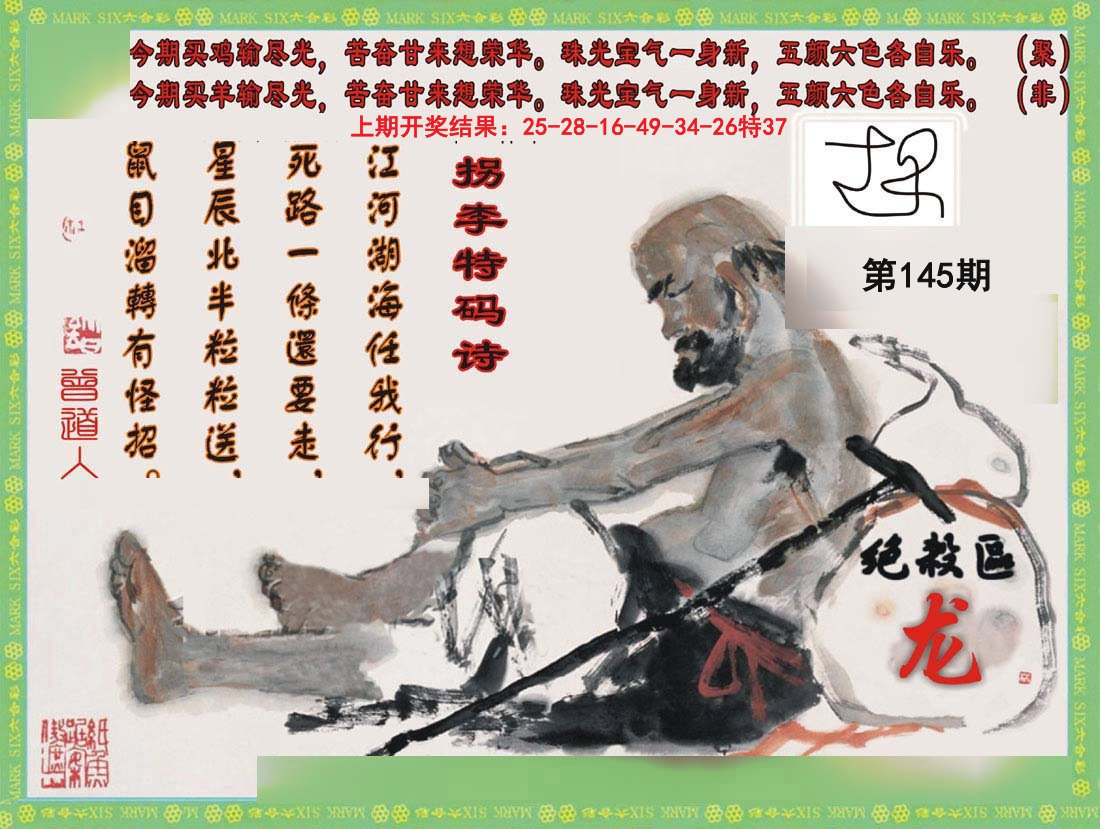 MARK SIX六合彩
今期买鸡输尽光，苦奋甘来想荣华。珠光宝气一身新，五颜六色各自乐。（聚）
今期买羊输尽光，苦奋甘来想荣华。珠光宝气一身新，五颜六色各自乐。（非）
上期开奖结果：25-28-16-49-34-26特37
第145期
拐李特码诗
江河湖海任我行，
死路一條還要走，
星辰北半粒粒送，
鼠目溜轉有怪招。
曾道人
绝殺區
龙